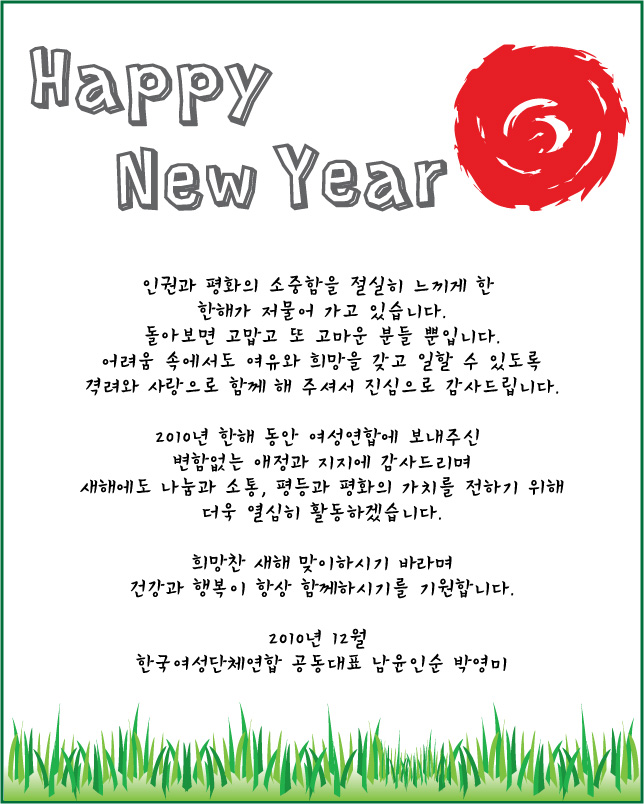 Happy
New Year
인권과 평화의 소중함을 절실히 느끼게 한
한해가 저물어 가고 있습니다.
돌아보면 고맙고 또 고마운 분들 뿐입니다.
어려움 속에서도 여유와 희망을 갖고 일할 수 있도록
격려와 사랑으로 함께 해 주셔서 진심으로 감사드립니다.
2010년 한해 동안 여성연합에 보내주신
변함없는 애정과 지지에 감사드리며
새해에도 나눔과 소통, 평등과 평화의 가치를 전하기 위해
더욱 열심히 활동하겠습니다.
희망찬 새해 맞이하시기 바라며
건강과 행복이 항상 함께하시기를 기원합니다.
2010년 12월
한국여성단체연합 공동대표 남윤인순 박영미